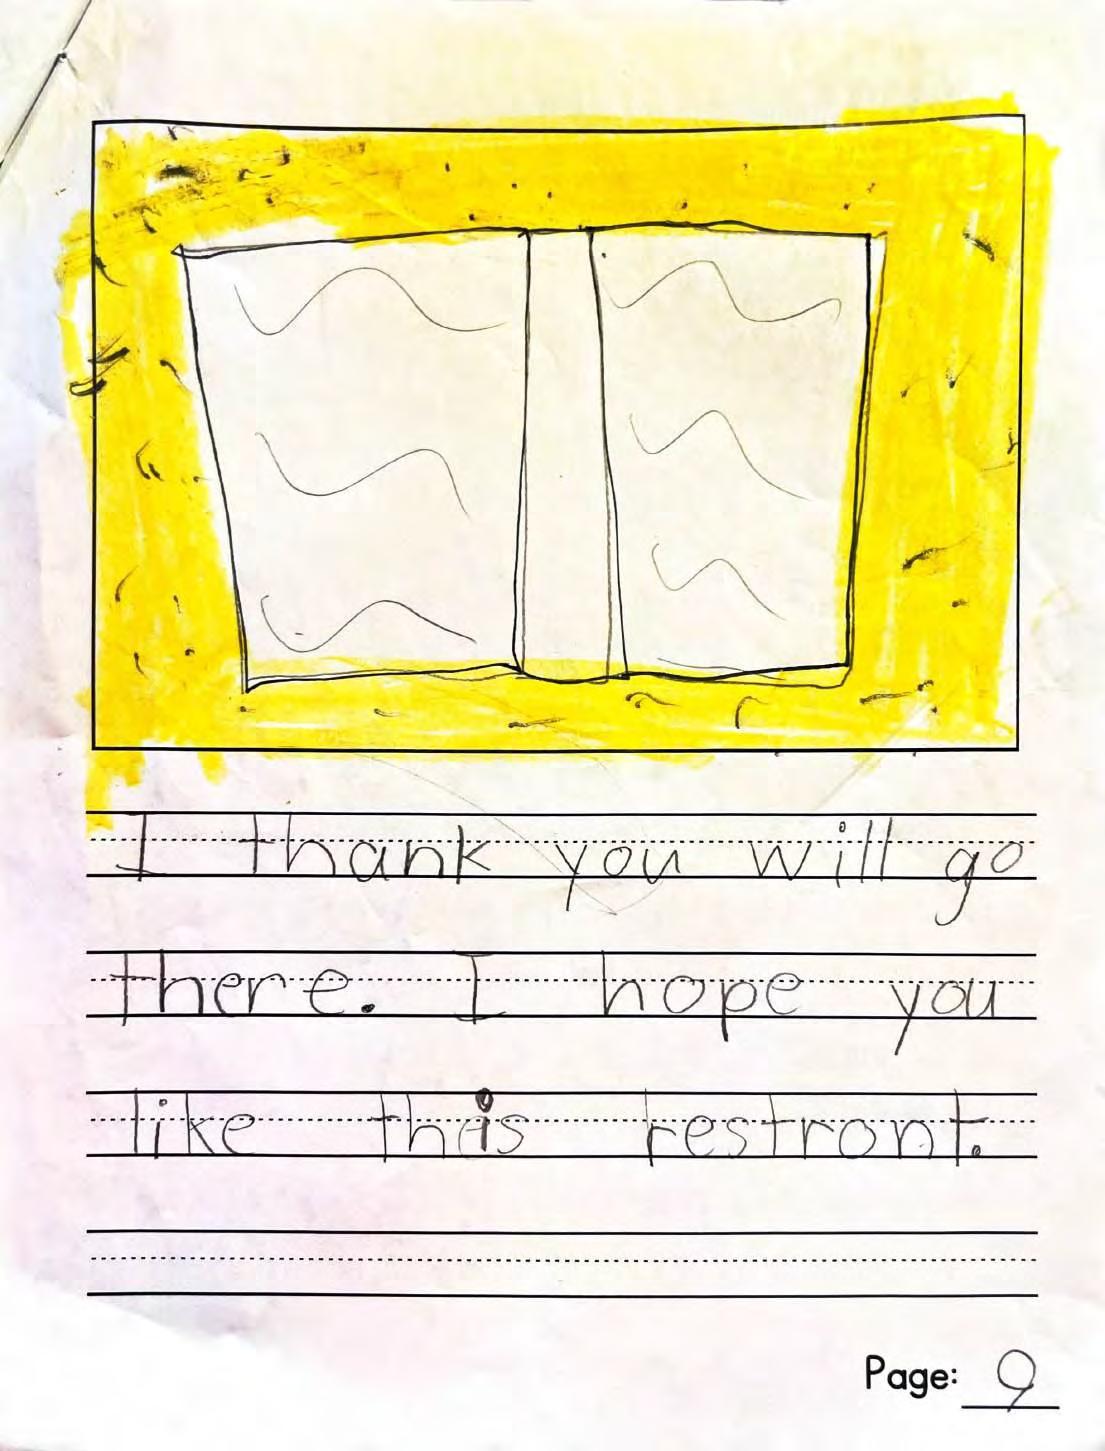 I thank you will go
there. I hope you
like this restront.
Page: 9